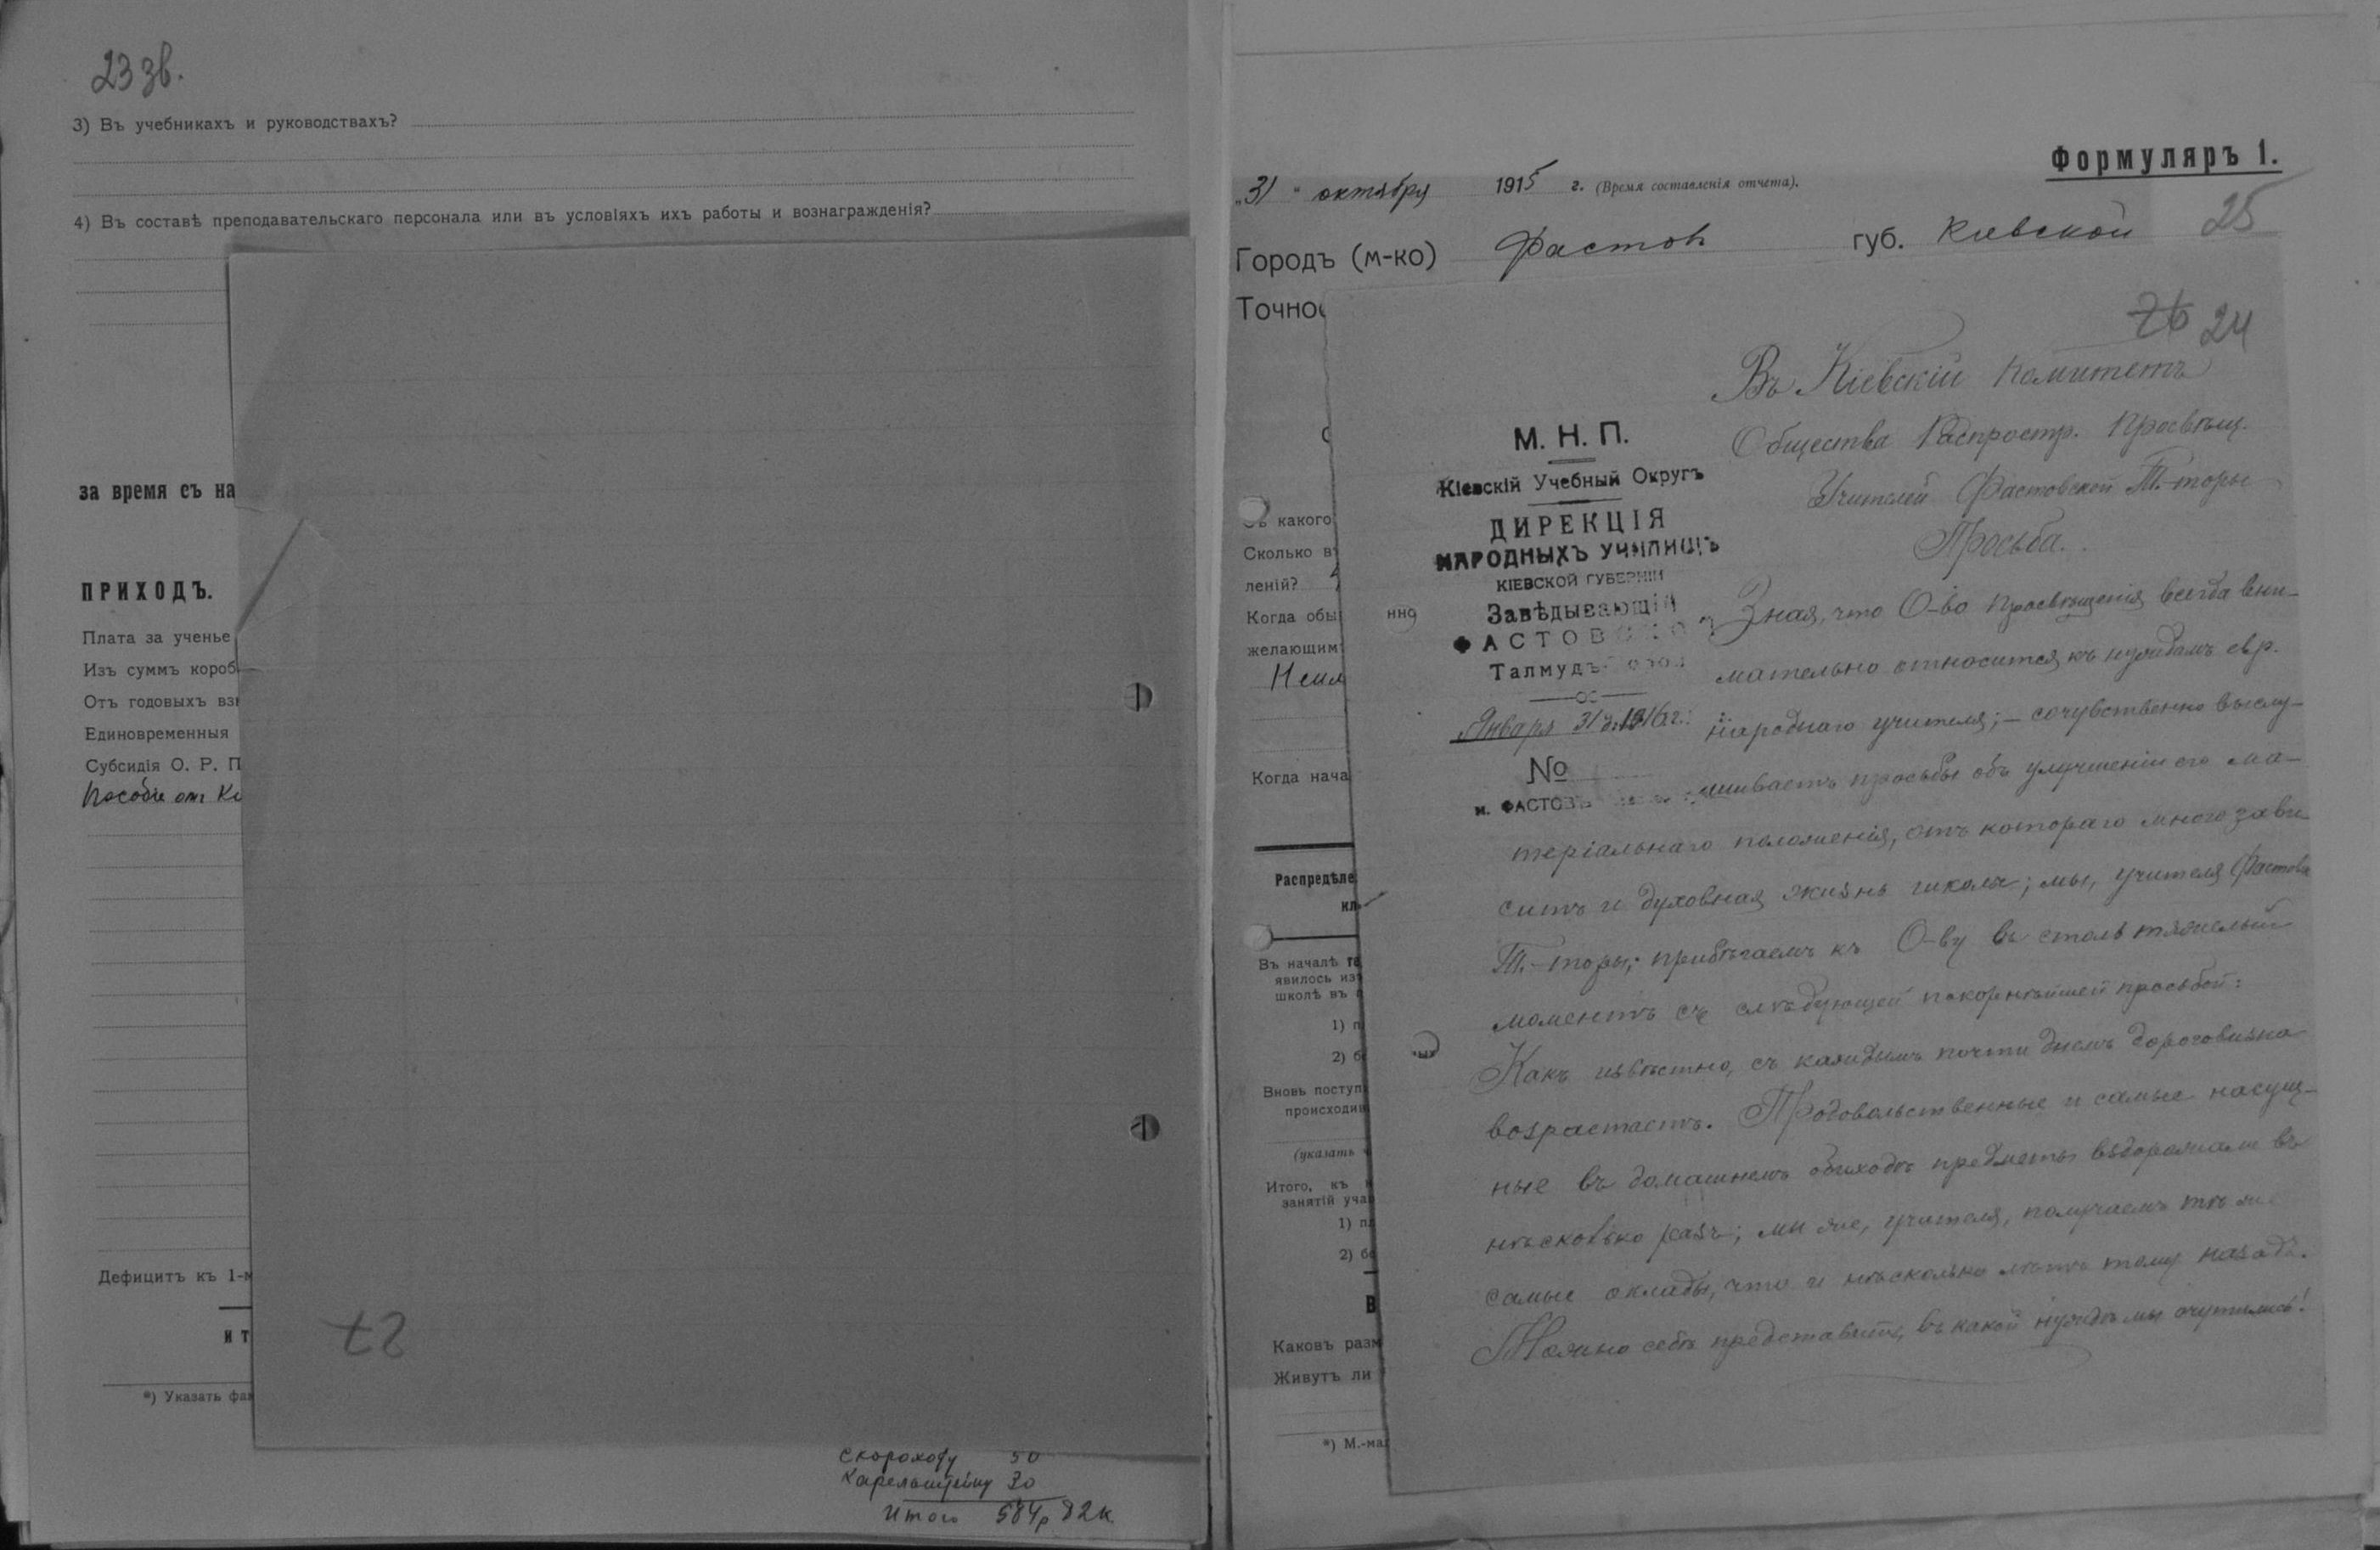 23 зв.
3) Въ учебникахъ и руководствахъ?
4) Въ составѣ преподавательскаго персонала или въ условіяхъ ихъ работы и вознагражденія?
за время съ на
ПРИХОДЪ.
Плата за ученье
Изъ суммъ короб
Отъ годовыхъ вз
Единовременныя
Субсидія О. Р. П
Пособіе от Ки
Дефицитъ къ 1-м
ИТ
*) Указать фа
Скороходу 50
Карельштейну 30
Итого 584р 82к.
Формуляръ 1.
„31" октября 1915 г. (Время составленія отчета).
25
Городъ (м-ко) Фастовъ губ. Кіевской
Точнос
какого
Сколько въ
леній?
Когда обы
желающим
Неим
Когда нача
Распредѣле
кл
Въ началѣ
явилось из
школѣ въ
1) п
2) б
Вновь поступ
происходи
(указать
Итого, къ
занятій уча
1) п
2) б
В
Каковъ разм
Живутъ ли
*) М.-ма
24
М. Н. П.
Кіевскій Учебный Округъ
ДИРЕКЦІЯ
НАРОДНЫХЪ УЧИЛИЩЪ
КІЕВСКОЙ ГУБЕРНІИ
Завѣдывающій
ФАСТОВСКОЙ
Талмудъ-Торой
Января 31 д. 1916 г.
№
м. ФАСТОВЪ
Въ Кіевскій Комитетъ
Общества Распростр. Просвѣщ.
Учителей Фастовской Т.-торы
Просьба.
Зная, что О-во Просвѣщенія всегда вни-
мательно относится къ нуждамъ евр.
народнаго учителя; – сочувственно выслу-
шиваетъ просьбы объ улучшеніи его ма-
теріальнаго положенія, отъ котораго много зави
ситъ и духовная жизнь школы; мы, учителя Фастов
Т.-торы, прибѣгаемъ къ О-ву въ столь тяжелый
моментъ съ слѣдующей покорнѣйшей просьбой:
Какъ извѣстно, съ каждымъ почти днемъ дороговизна
возрастаетъ. Продовольственные и самые насущ-
ные въ домашнемъ обиходѣ предметы вздорожали въ
нѣсколько разъ; мы же, учителя, получаемъ тѣ же
самые оклады, что и нѣсколько лѣтъ тому назадъ.
Можно себѣ представить, въ какой нуждѣ мы очутились!